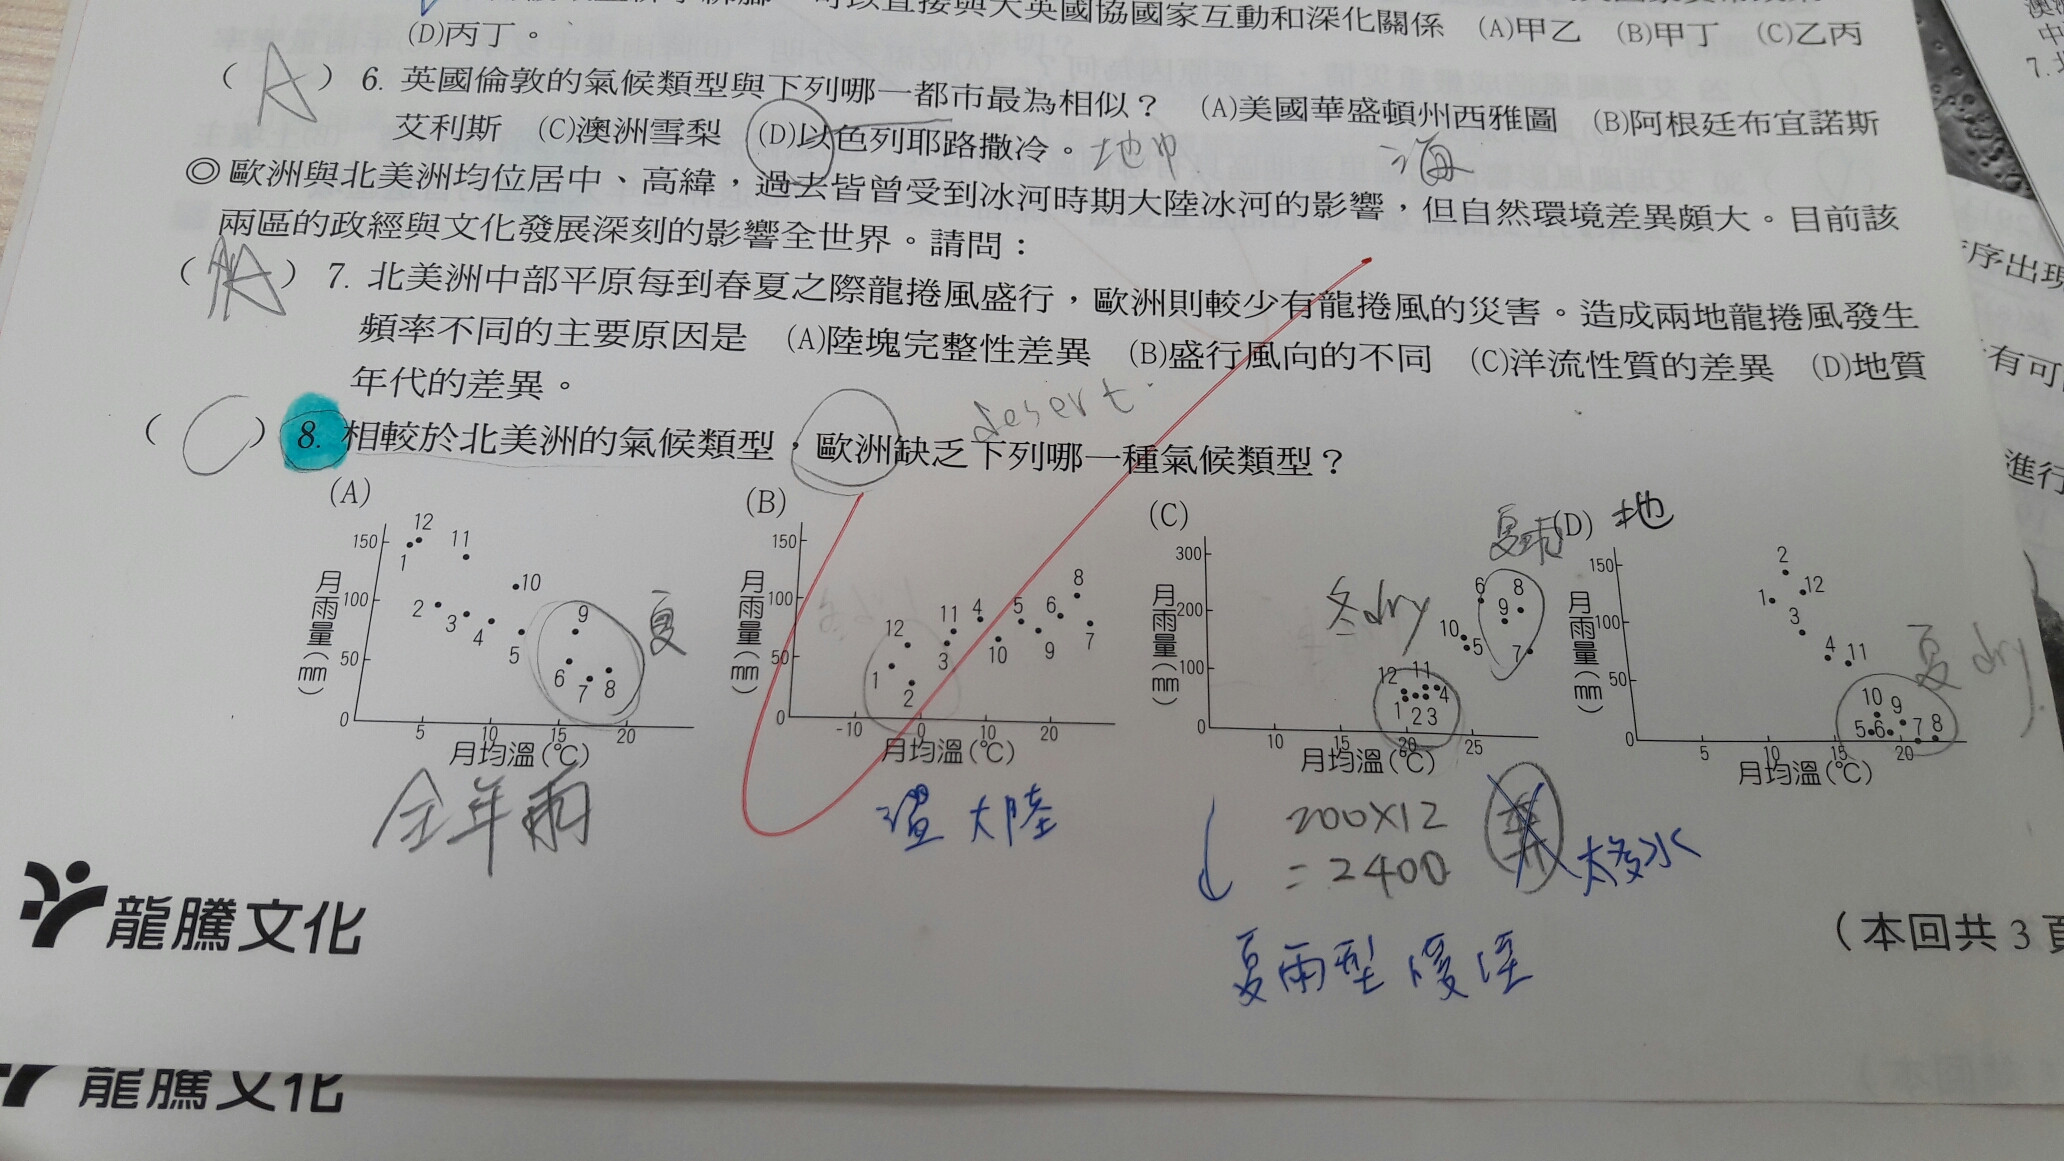 可以直接與大英國協國家互動和深化關係 (A)甲乙 (B)甲丁 (C)乙丙
(D)丙丁。
( A ) 6. 英國倫敦的氣候類型與下列哪一都市最為相似? (A)美國華盛頓州西雅圖 (B)阿根廷布宜諾斯
艾利斯 (C)澳洲雪梨 (D)以色列耶路撒冷。地中 海
◎歐洲與北美洲均位居中、高緯，過去皆曾受到冰河時期大陸冰河的影響，但自然環境差異頗大。目前該
兩區的政經與文化發展深刻的影響全世界。請問：
( A ) 7. 北美洲中部平原每到春夏之際龍捲風盛行，歐洲則較少有龍捲風的災害。造成兩地龍捲風發生
頻率不同的主要原因是 (A)陸塊完整性差異 (B)盛行風向的不同 (C)洋流性質的差異 (D)地質
年代的差異。
desert
( C ) 8. 相較於北美洲的氣候類型，歐洲缺乏下列哪一種氣候類型?
(A)
150
100
50
0
月雨量(mm)
12
1
11
10
2
3
4
5
9
6
7
8
夏
5 10 15 20
月均溫(℃)
全年雨
(B)
150
100
50
0
月雨量(mm)
8
12
11
4
5
6
3
10
9
7
1
2
-10 0 10 20
月均溫(℃)
溫大陸
(C)
300
200
100
0
月雨量(mm)
夏雨
冬dry
6
8
9
10
5
7
12
11
4
1
2
3
10 15 20 25
月均溫(℃)
200×12
=2400
太多水
夏雨型暖溼
(D) 地
150
100
50
0
月雨量(mm)
2
12
1
3
4
11
夏dry
10
9
5
6
7
8
5 10 15 20
月均溫(℃)
龍騰文化
(本回共3頁
龍騰文化
中
7.
序出現
有可
進行